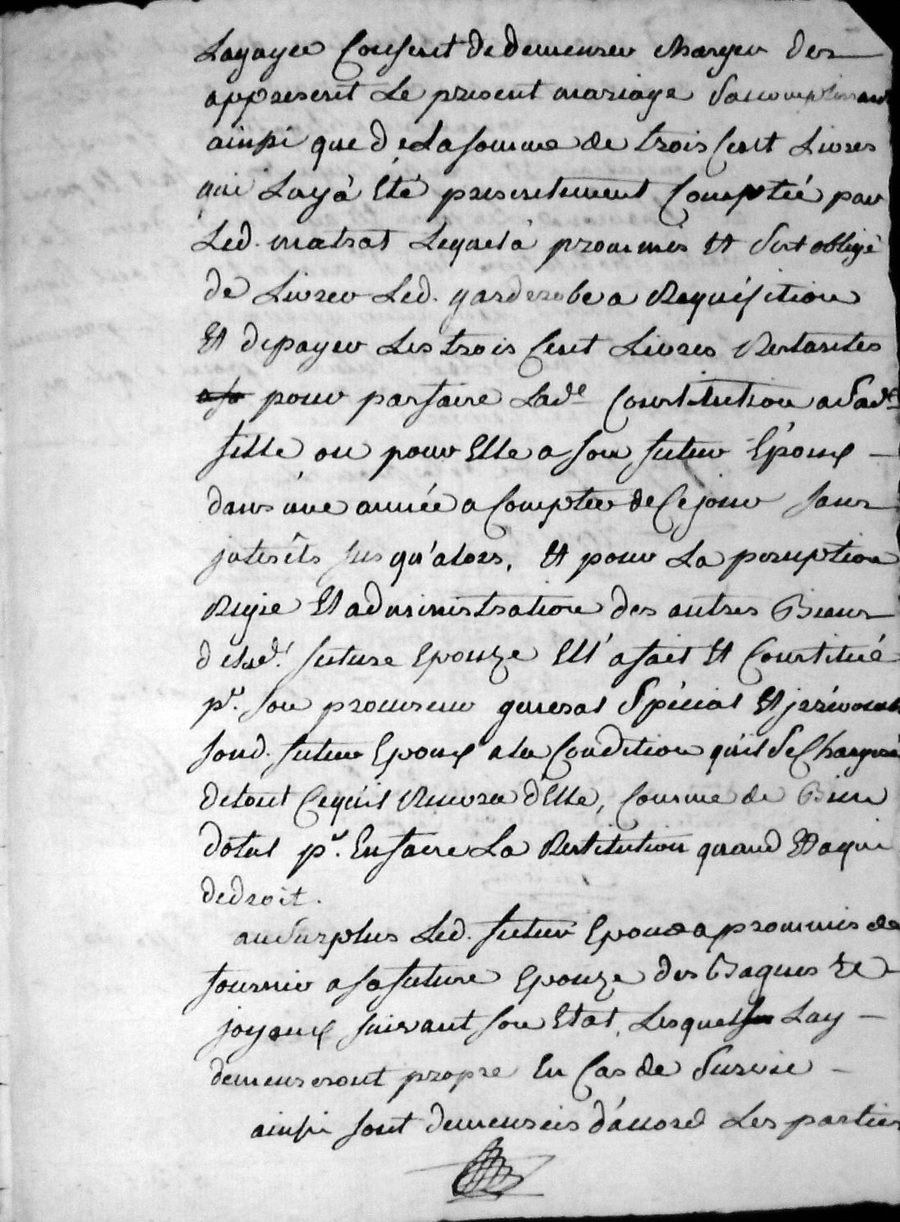 Layayee Consent de demeurer charger des
appresent Le present mariage Saccomplissant
ainsi que de La somme de trois Cent Livres
qui Lay à Eté presentement Comptée par
Led. matrat Lequel à prommis Et Sest obligé
de Livrer Led. garderobe a Requisition
Et de payer Les trois Cent Livres Restantes
pour parfaire Lade. Constitution a Sade.
fille ou pour Elle a son futur Epoux
dans une année a Compter de Ce jour sans
jnterêts jusqu'alors, Et pour La perception
Regie Et administration des autres Biens
de Lad. future Epouze Ell' a fait Et Constitué
pr. son procureur general Spécial Et jrrévocable
sond. futur Epoux a la Condition qu'il Se Chargera
de tout Ce qu'il Recevra d'Elle, Comme de Bien
dotal pr. En faire La Restitution quand Et a qui
de droit.
au Surplus Led. futur Epoux a prommis de
fournir a sa future Epouze des Bagues Et
joyaux suivant son Etat, Lesquels Lay
demeureront propre En Cas de Survie
ainsi sont demeurés d'accord Les parties